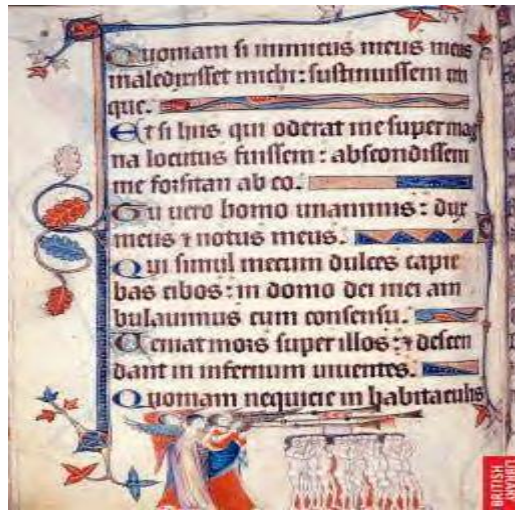 Quoniam si inimicus meus meus
maledixisset michi: sustinuissem uti
que.
Et si hiis qui oderat me super mag
na locutus fuissem: abscondissem
me forsitan ab eo.
Tu uero homo unanimis: dux
meus ⁊ notus meus.
Qui simul mecum dulces capie
bas cibos: in domo dei mei am
bulauimus cum consensu.
Ueniat mors super illos: ⁊ descen
dant in infernum uiuentes.
Quoniam nequicie in habitaculis
BRITISH
LIBRARY